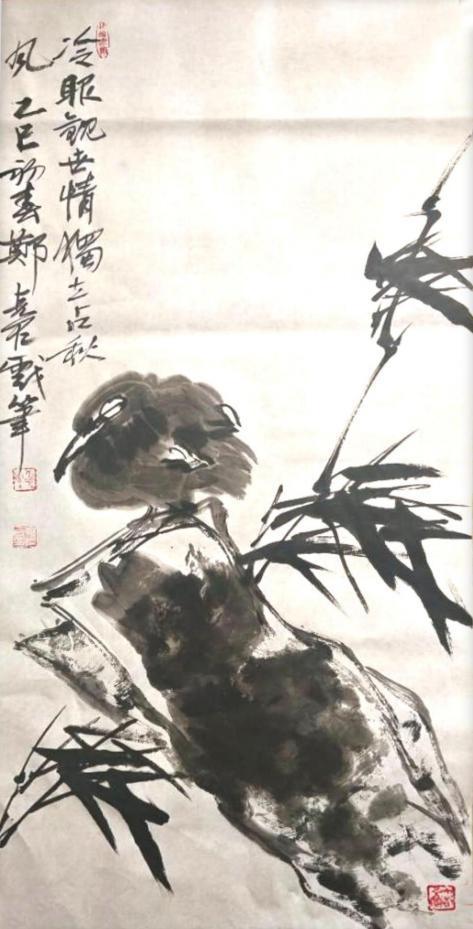 冷眼觀世情獨立占秋
風乙巳初春鄭 戲筆